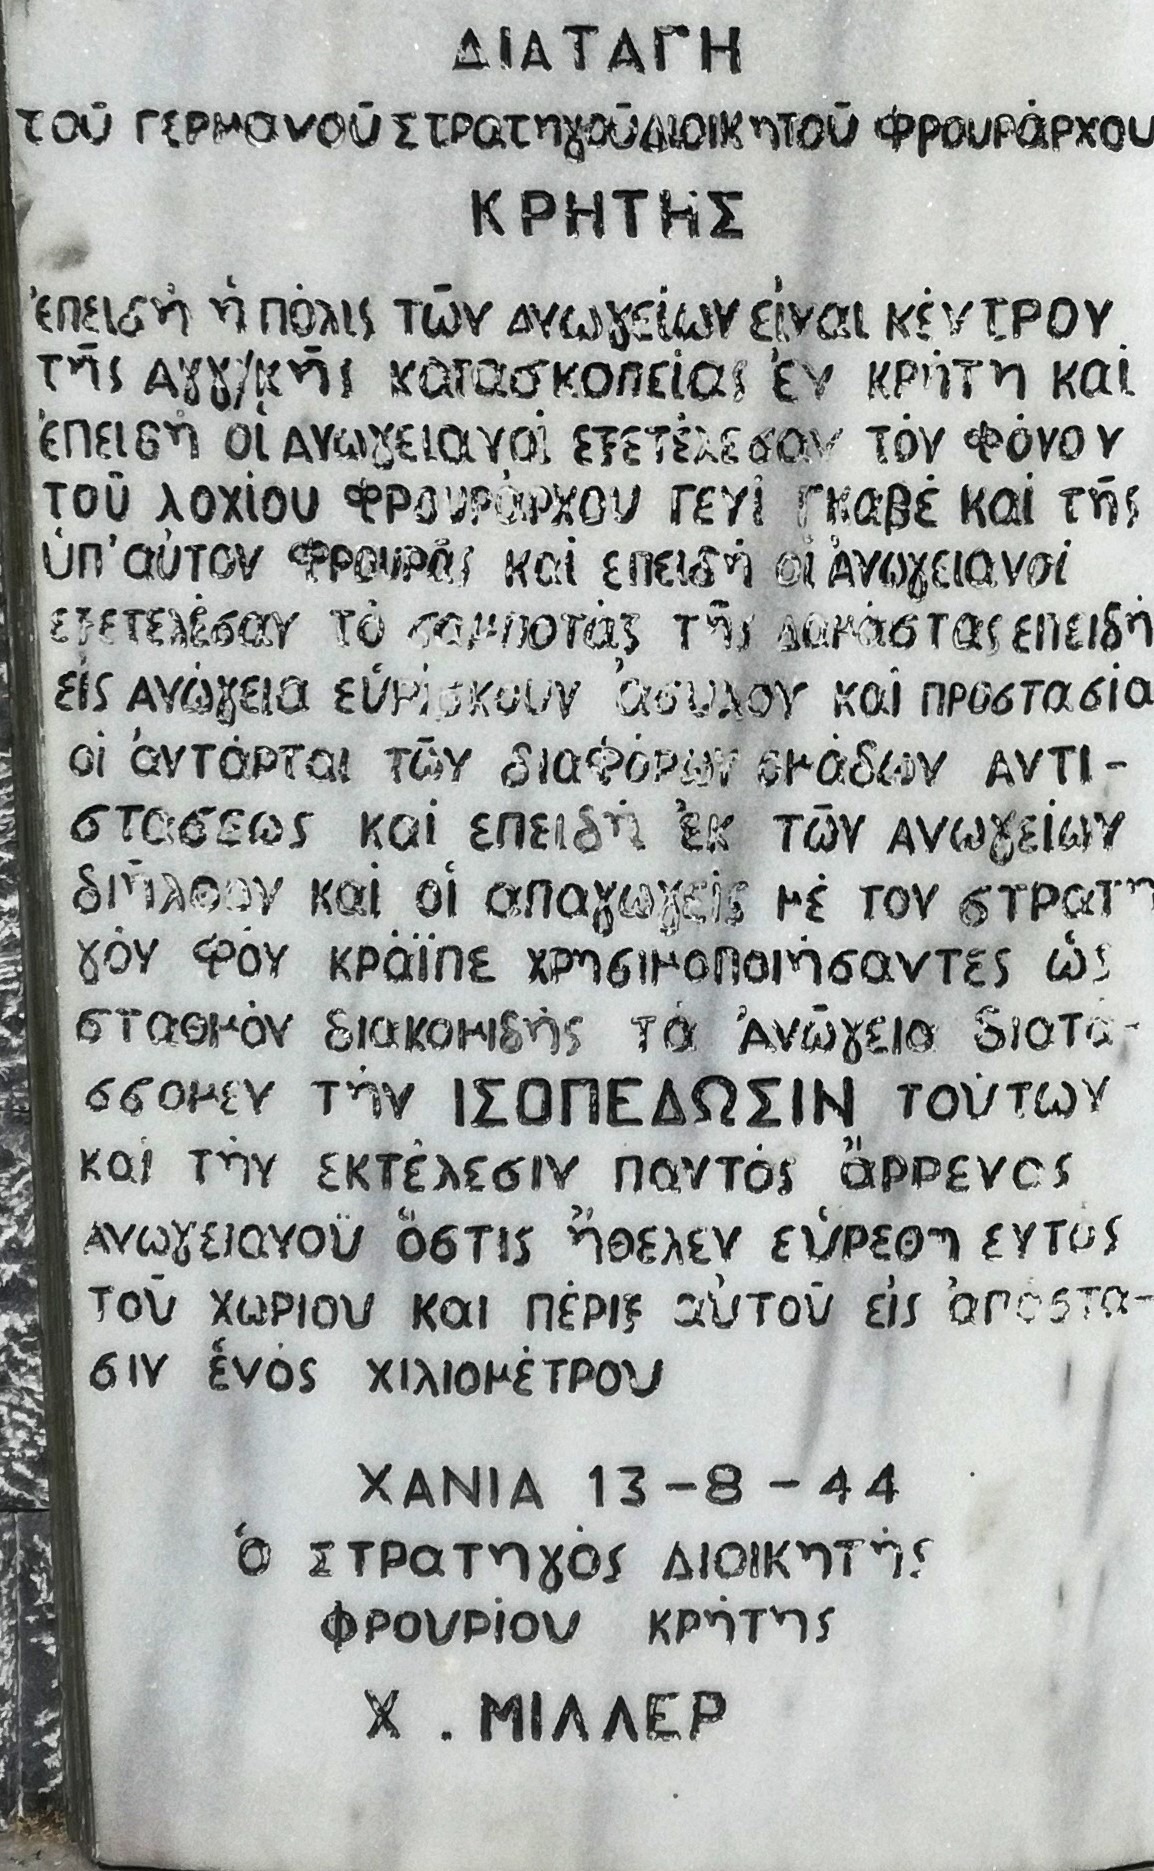 ΔΙΑΤΑΓΗ
τοῦ Γερμανοῦ Στρατηγοῦ Διοικητοῦ Φρουράρχου
ΚΡΗΤΗΣ
ἐπειδή ἡ πόλις τῶν Ανωγείων εἶναι κέντρον
τῆς Αγγ/κῆς κατασκοπείας ἐν Κρήτη καί
ἐπειδή οἱ Ανωγειανοί εξετέλεσαν τόν φόνον
τοῦ λοχίου Φρουράρχου Γενί Γκαβέ καί τῆς
ὑπ' αὐτον φρουρᾶς καί επειδή οἱ Ἀνωγειανοί
εξετελέσαν τό σαμποτάζ τῆς Δαμάστας επειδή
εἰς Ανώγεια εὑρίσκουν ἀσυλον καί προστασία
οἱ ἀντάρται τῶν διαφόρων ομάδων αντι-
στασεως καί επειδή ἐκ τῶν Ανωγείων
διῆλθον καί οἱ απαγωγείς μέ τον στρατη
γόν φόν Κράϊπε χρησιμοποιήσαντες ὡς
σταθμόν διακομιδής τά Ἀνῶγεια διατά-
σσομεν τήν ΙΣΟΠΕΔΩΣΙΝ τούτων
καί τήν εκτέλεσιν παντός ἄρρενος
Ανωγειανοῦ ὅστις ἤθελεν εὑρεθη εντός
τοῦ χωριου και πέριξ αὐτοῦ εἰς ἀπόστα-
σιν ἑνός χιλιομέτρου
ΧΑΝΙΑ 13-8-44
Ὁ Στρατηγός Διοικητής
Φρουρίου Κρήτης
Χ. ΜΙΛΛΕΡ